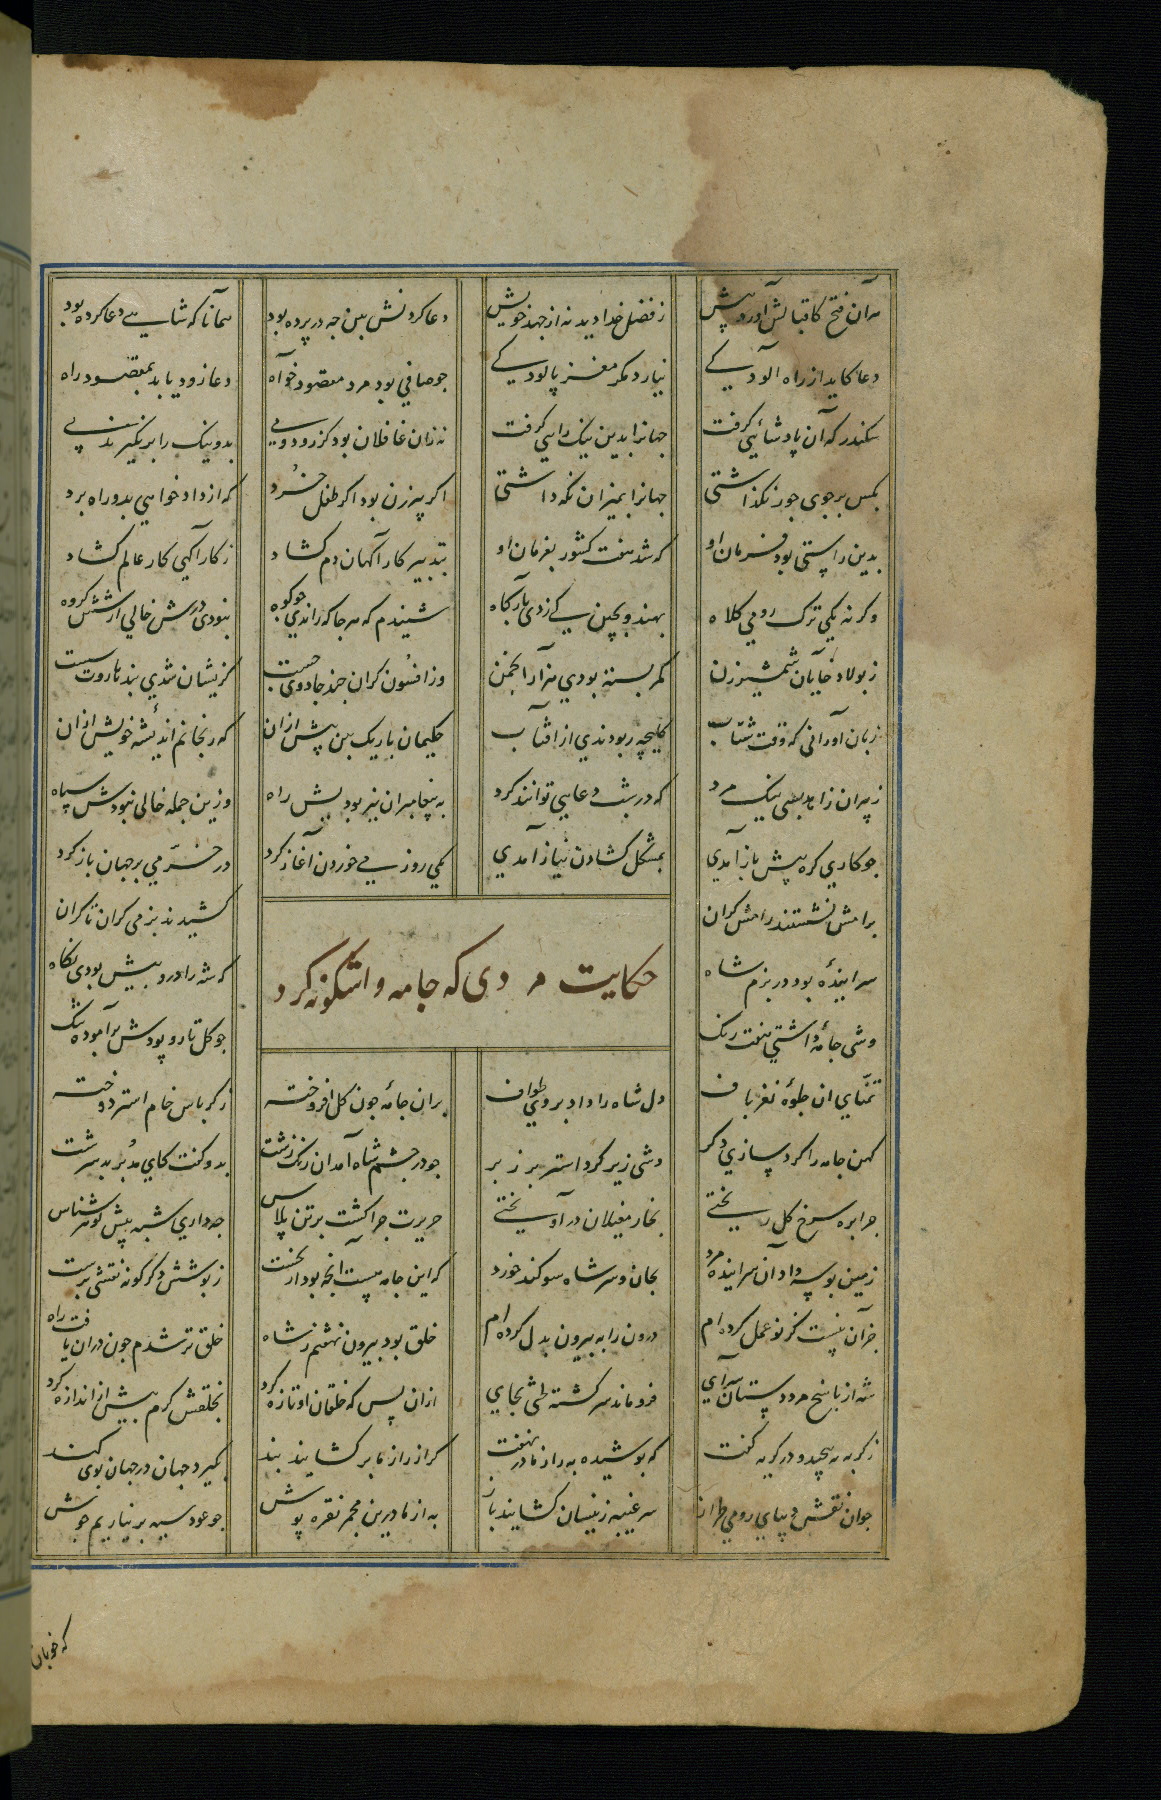 هر آن فتح کاقبالش آورد پیش ز فضل خدا دید نه از جهد خویش دعا کردنش بین چه در پرده بود همانا که شاهی دعا کرده بود
دعا کاید از راه آلودگی نیارد مگر مغز پالودگی چو صافی بود مرد مقصود خواه دعا زود یابد بمقصود راه
سکندر که آن پادشائی گرفت جهانرا بدین نیک رایی گرفت نه زان غافلان بود کز رود و می بد و نیک را بر نگیرند پی
بکس بر جوی جور نگذاشتی جهانرا بمیزان نگه داشتی اگر پیرزن بود اگر طفل خرد گه از داد خواهی بدو راه برد
بدین راستی بود فرمان او که شد هفت کشور بفرمان او بتدبیر کار آگهان دم گشاد ز کار آگهی کار عالم گشاد
وگر نه یکی ترک رومی کلاه بهند و بچین کی زدی بارگاه شنیدم که هر جا که راندی چو کوه نبودی درش خالی از شش گروه
ز پولاد خایان شمشیر زن کمر بسته بودی هزار انجمن وز افسون گران چند جادوی چست کزیشان شدی بند هاروت سست
زبان آورانی که وقت شتاب کلیچه ربودندی از آفتاب حکیمان باریک بین پیش ازان که رنجانم اندیشه خویش ازان
ز پیران زاهد بسی نیک مرد که در شب دعایی توانند کرد به پیغامبران نیز بودیش راه وزین جمله خالی نبودش سپاه
چو کاری گره پیش باز آمدی بمشکل گشادن نیاز آمدی یکی روز می خوردن آغاز کرد در خرمی بر جهان باز کرد
برامش نشستند رامش گران کشیدند بزمی کران تا کران
حکایت مردی که جامه واشگونه کرد
سراینده بود در بزم شاه که شه را درو بیش بودی نگاه
وشی جامه داشتی هفت رنگ چو گل تار و پودش برآموده تنگ
تمنای آن جلوه نغز باف دل شاه را داد بروی طواف بران جامه چون گل افروخته ز کرباس خام استر دوخته
کهن جامه را کرد سازی دگر وشی زیر کرد استر بر زبر چو در چشم شاه آمد آن رنگ زشت بدو گفت کای مدبر بد سرشت
چرا بره سرخ گل ریختی بخار مغیلان در آویختی حریرت چرا گشت بر تن پلاس چه داری شبه پیش گوهر شناس
زمین بوسه داد آن سراینده مرد بجان و سر شاه سوگند خورد که این جامه نیست آنچه بود از نخست ز پوشش دگر گونه نقشی برست
جز آن نیست کز نو عمل کرده ام درون را به بیرون بدل کرده ام خلق بود بیرون نهفتم ز شاه خلق تر شدم چون دران یافت راه
شه از پاسخ مرد دستان سرای فرو ماند سرگشته لختی بجای ازان پس که خلقان او تازه کرد بخلقش کرم بیش از اندازه کرد
ز گریه بپیچید و در گریه گفت که پوشیده به راز ما در نهفت گر از راز ما بر گشایند بند بگیرد جهان در جهان بوی گند
چو آن نقش دیبای رومی طراز سر عیبه زینسان گشایند باز به از ما درین مجمر نقره پوش چو عود سیه بر نیاریم جوش
که خوبان